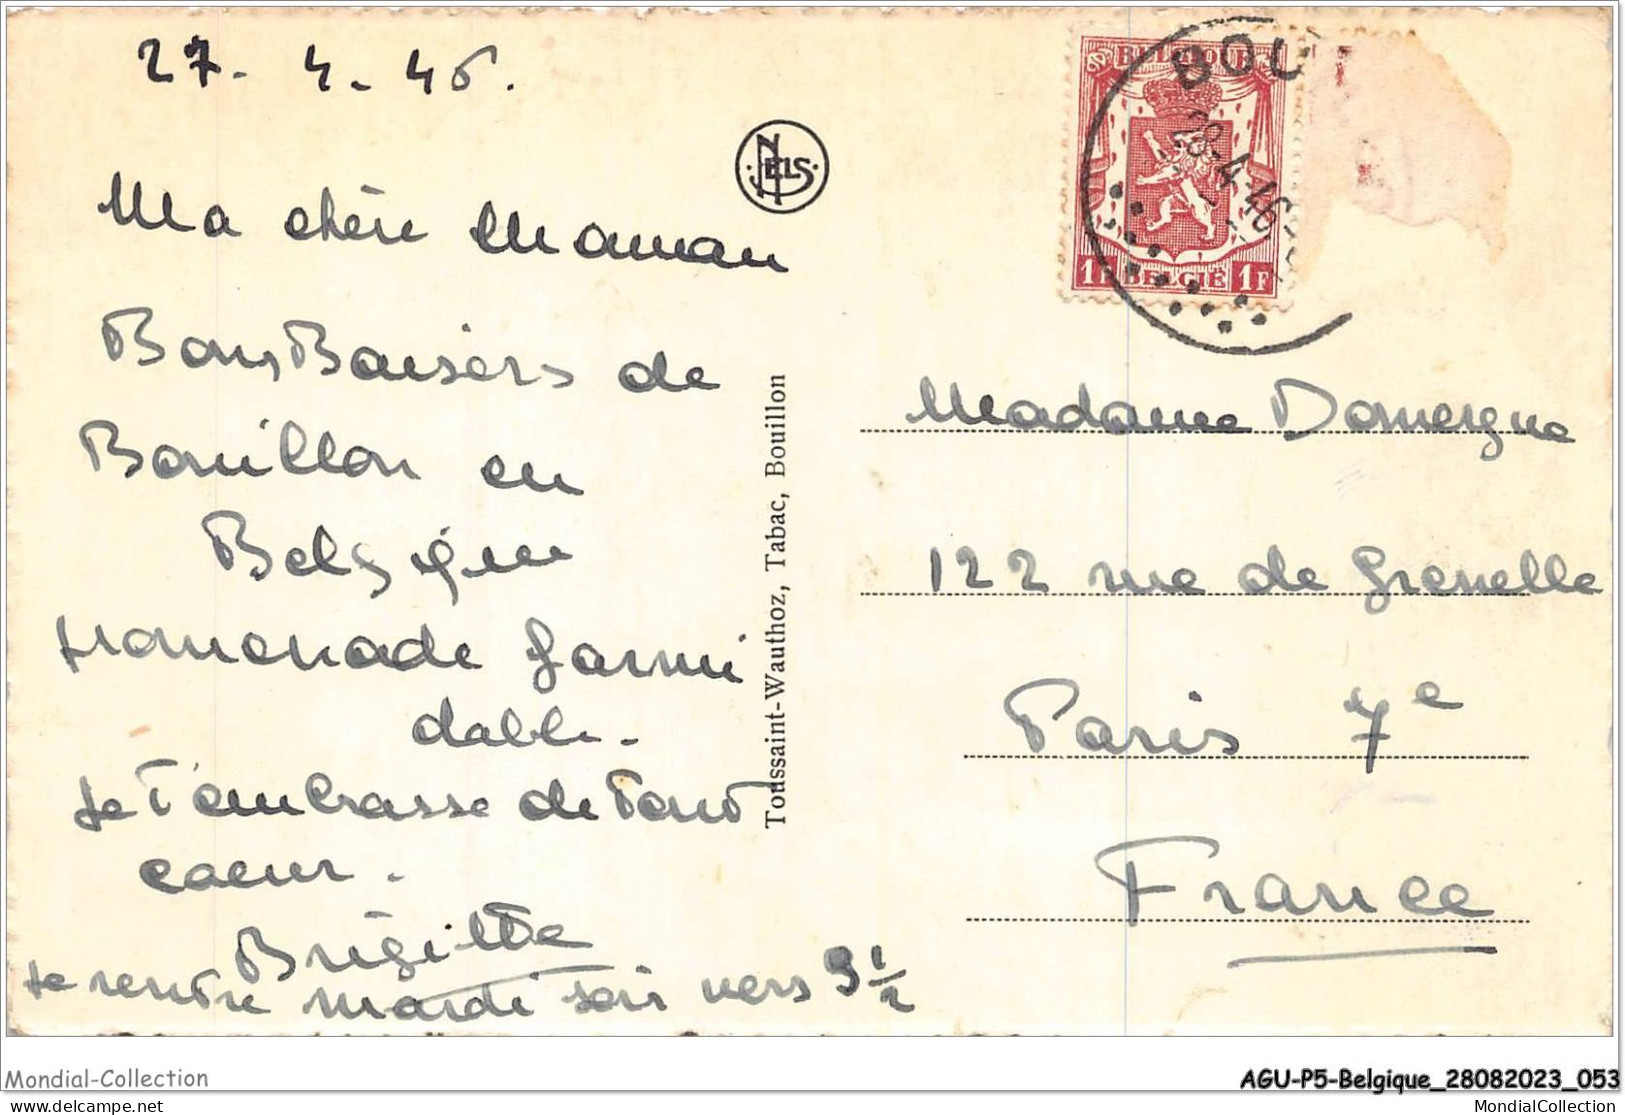 27 - 4 - 46.
Ma chère Maman
Bons Baisers de
Bouillon en
Belgique
promenade formi
dable -
Je t'embrasse de tout
coeur -
Brigitte
Je rentre mardi soir vers 9 1/2
NELS
Toussaint-Wauthoz, Tabac, Bouillon
BELGIQUE
1F BELGIË 1F
BOU
28-4-46
Madame Domergue
122 rue de Grenelle
Paris 7e
France
Mondial-Collection
AGU-P5-Belgique_28082023_053
www.delcampe.net
MondialCollection